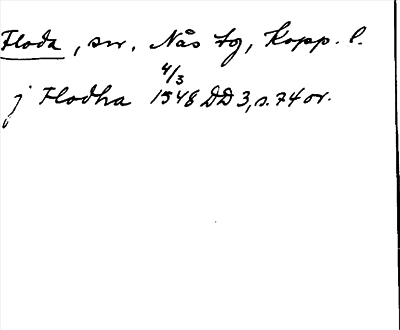 Floda, sn, Nås tg, Kopp. l.
4/3
j Flodha 1548 DD 3, s. 74 or.